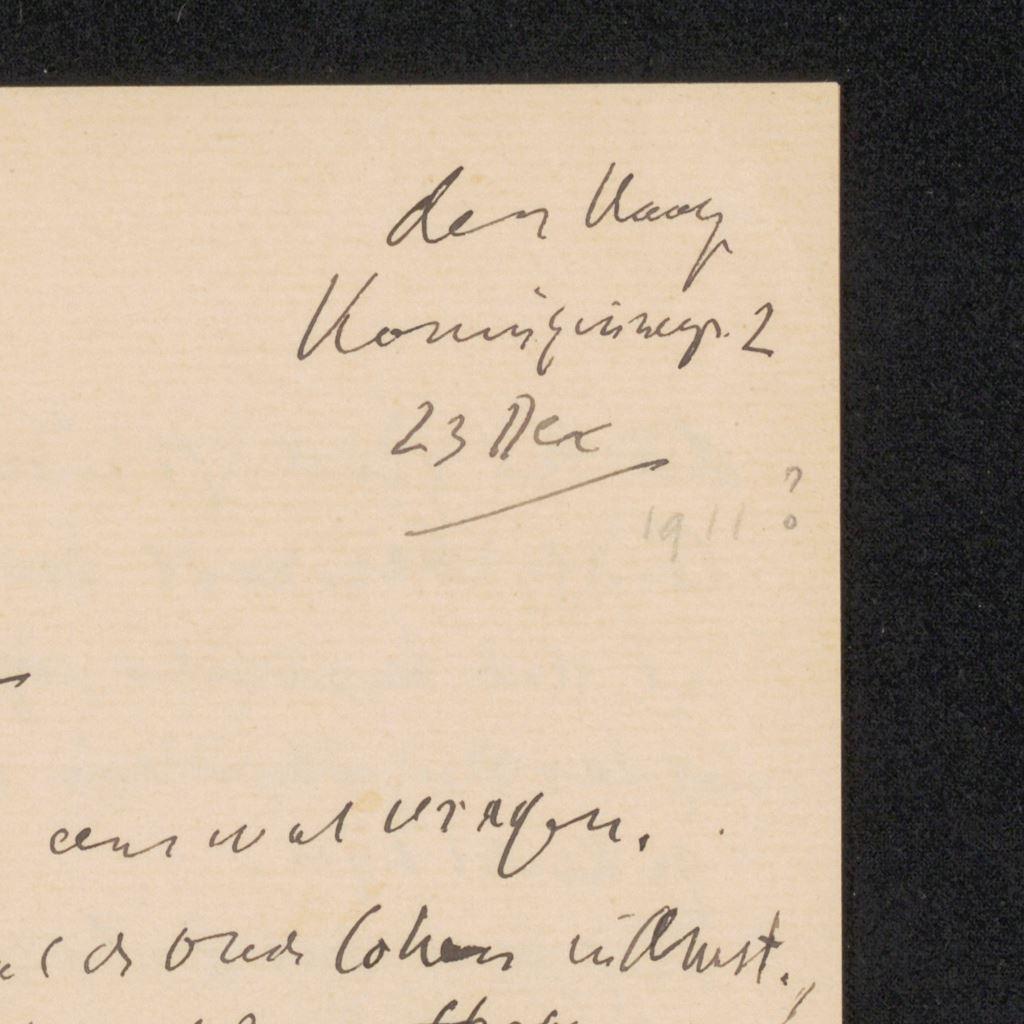 den Haag
Koninginneg. 2
23 Dec
1911?
eens wat vragen.
de oude Cohen in Amst.,